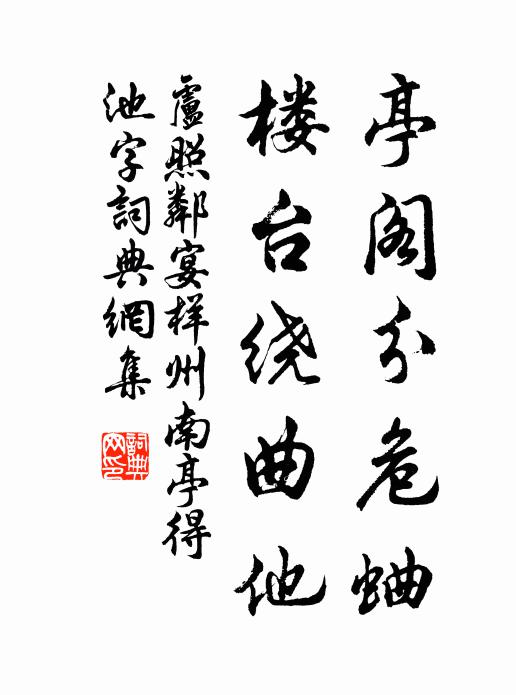 亭阁分危岫
楼台绕曲池
盧照鄰宴梓州南亭得
池字詞典網集
詞典网印